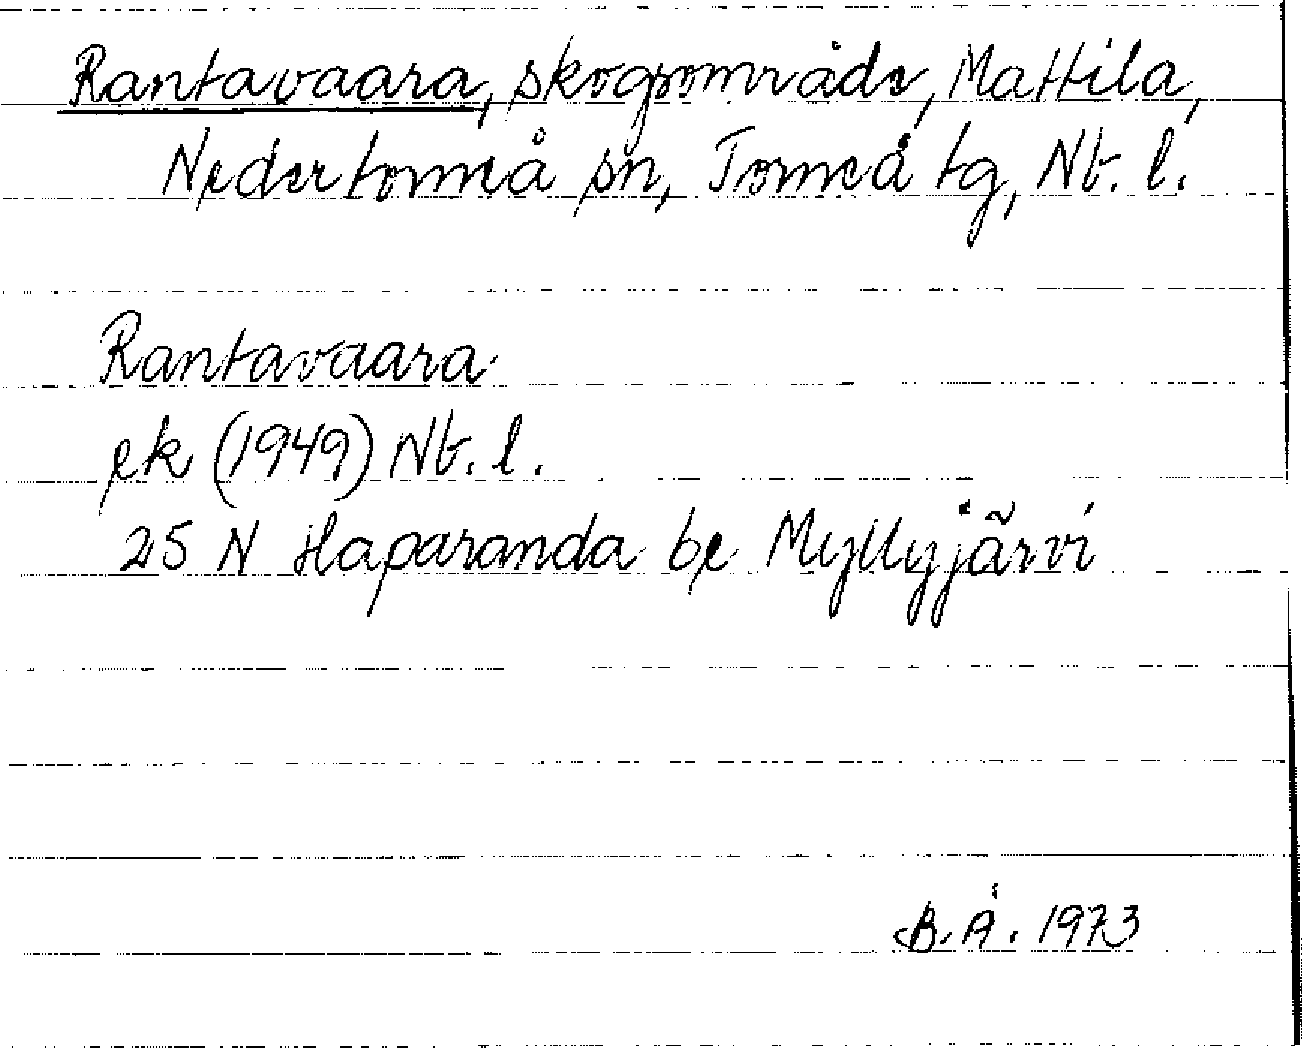 Rantavaara, skogsområde, Mattila,
Nedertorneå sn, Torneå tg, Nb. l.
Rantavaara
ek (1949) Nb. l.
25 N Haparanda be Myllyjärvi
B. Å. 1973